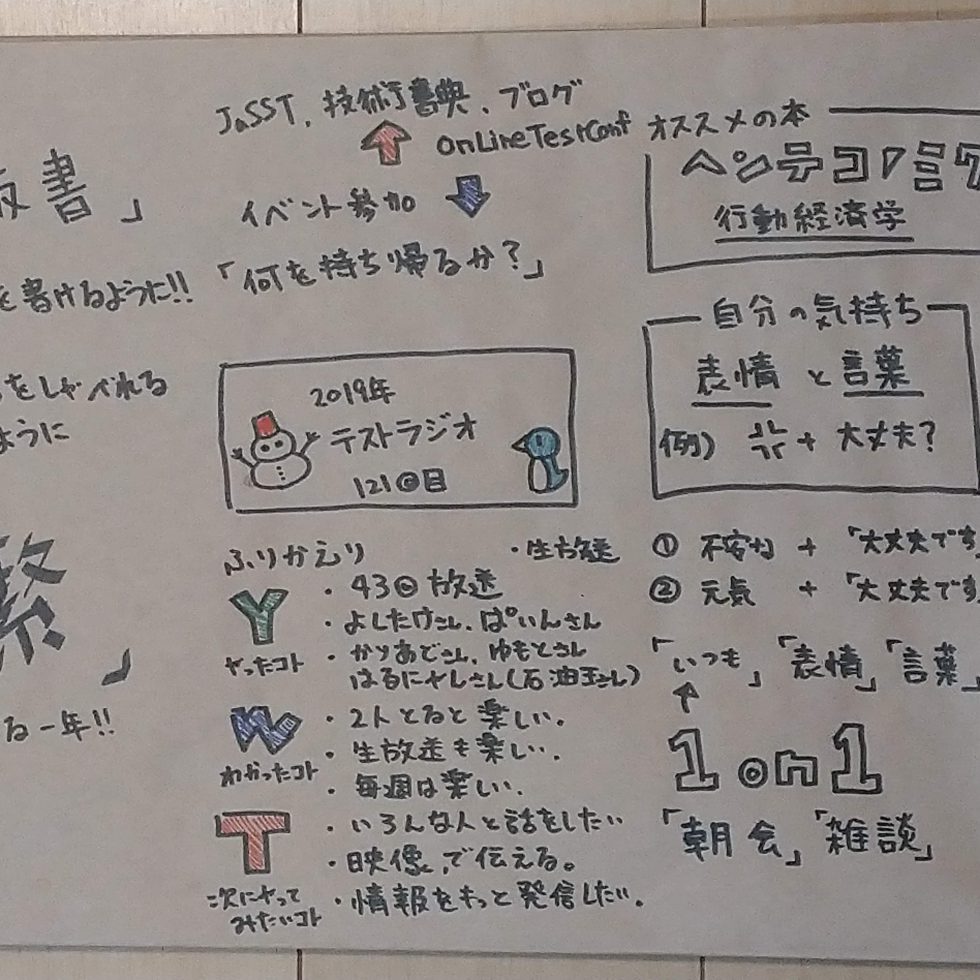 書」
を書けるように!!
をしゃべれる
ように
繋
」
る一年!!
JaSST、技術書典、ブログ
OnLineTestConf
イベント参加
「何を持ち帰るか?」
2019年
テストラジオ
121回目
ふりかえり
・生放送
Y
ヤッたコト
・43回放送
・よしたけさん、ぱいんさん
・かりあどさん、ゆもとさん
はるにゃしさん(石油王さん)
W
わかったコト
・2人とると楽しい。
・生放送も楽しい。
・毎週は楽しい。
T
次にヤッて
みたいコト
・いろんな人と話をしたい
・映像、で伝える。
・情報をもっと発信したい。
オススメの本
ヘンテコノミク
行動経済学
自分の気持ち
表情と言葉
例) + 大丈夫?
① 不安な + 「大丈夫です
② 元気 + 「大丈夫です
「いつも」「表情」「言葉」
1on1
「朝会」「雑談」